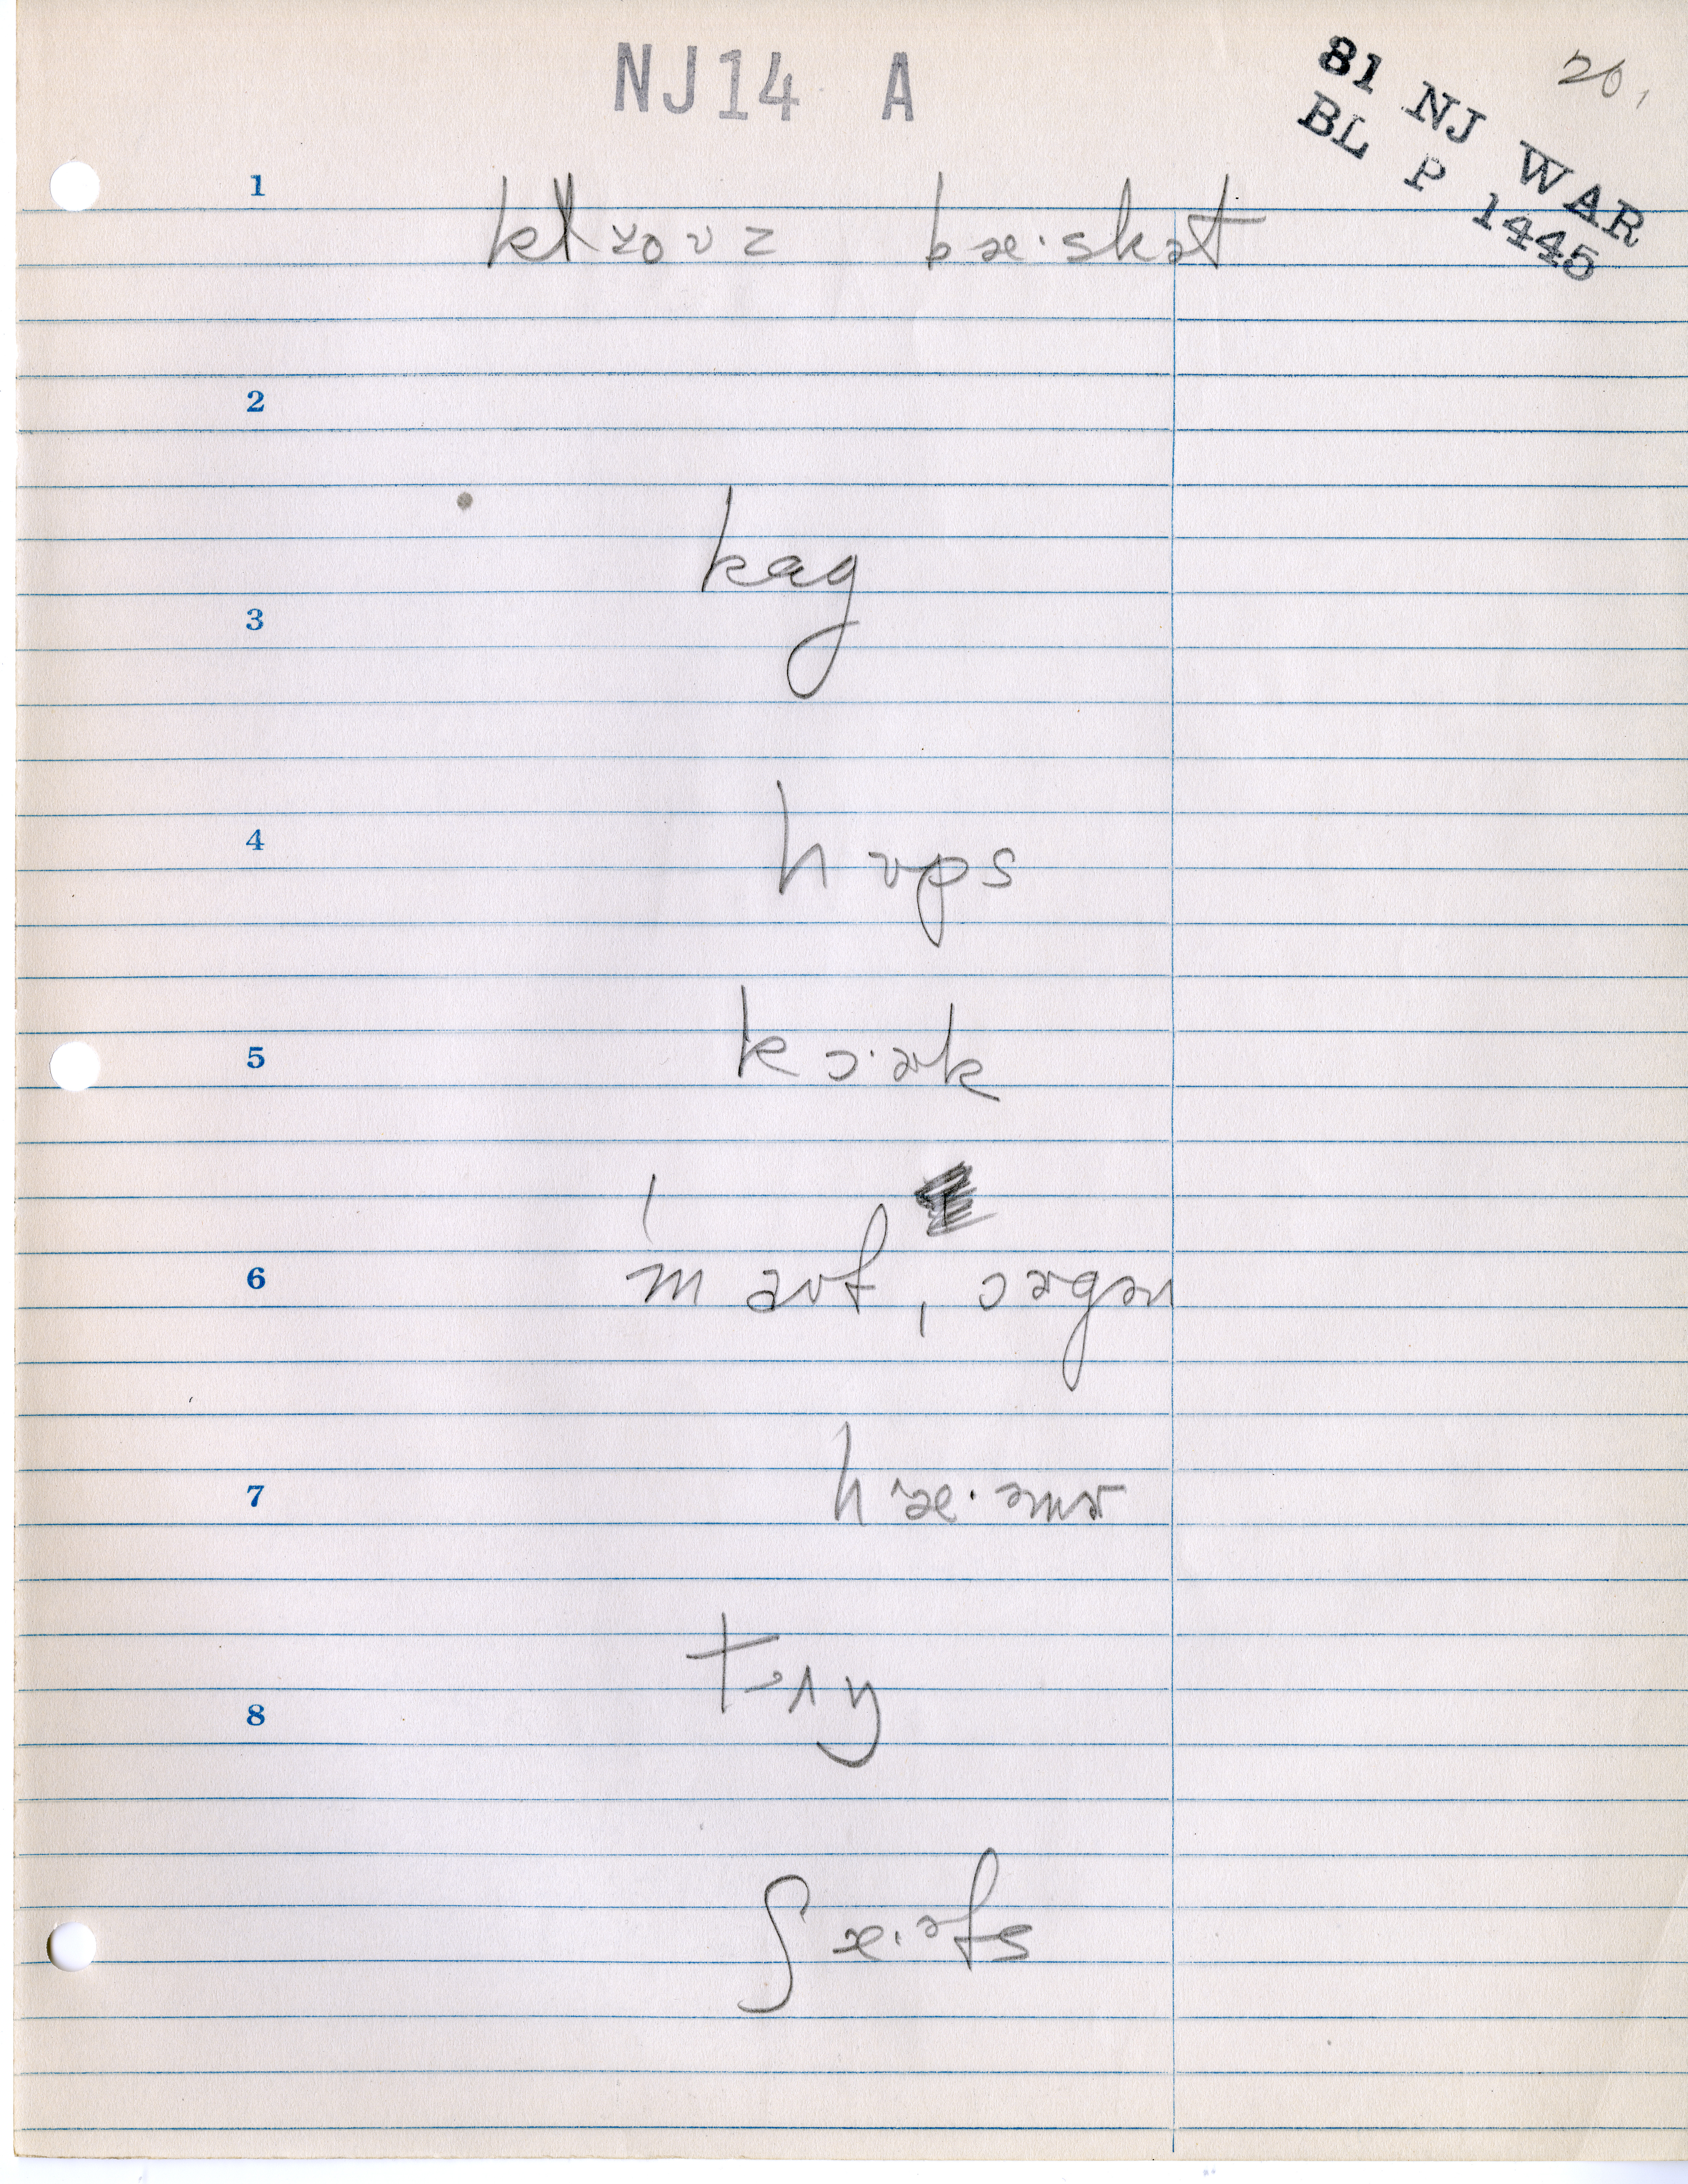 NJ14 A
81 NJ WAR
BL P 1445
20.
1
klɤoʊz bæ·skət
2
kag
3
4
hʊps
5
kɔ·ɚk
6
maʊf, ɔɚgən
7
hæ·əmɚ
8
tɔŋ
ʃæ·əfs